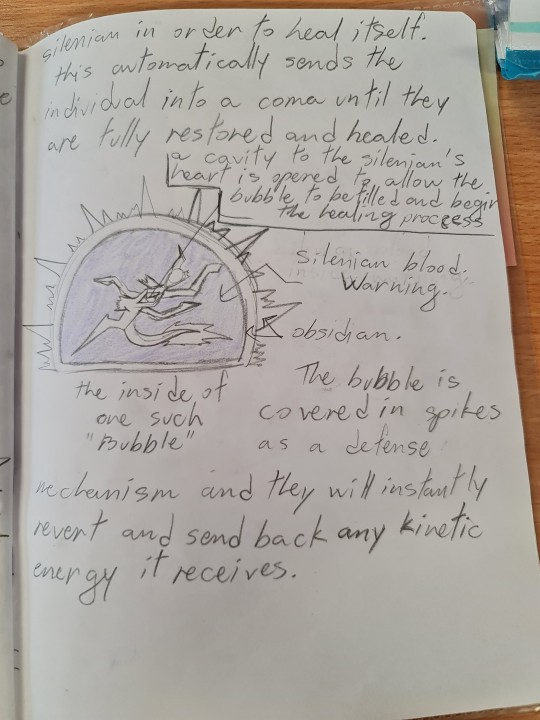 silenian in order to heal itself.
this automatically sends the
individual into a coma until they
are fully restored and healed.
a cavity to the silenian's
heart is opened to allow the
bubble to be filled and begin
the healing process
silenian blood.
Warning.
obsidian.
the inside of
one such
"Bubble"
The bubble is
covered in spikes
as a defense
mechanism and they will instantly
revert and send back any kinetic
energy it receives.